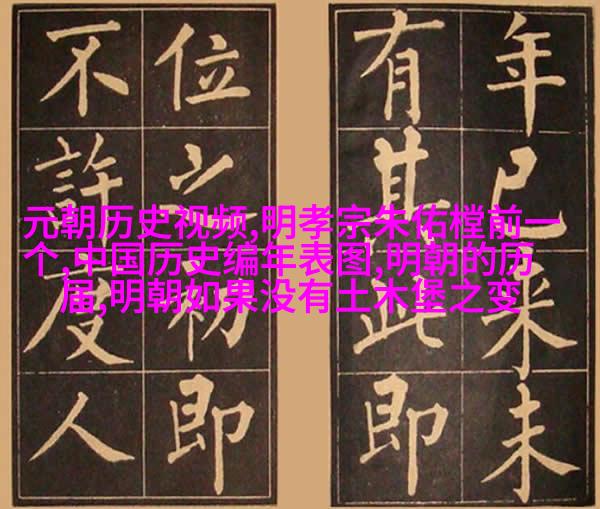 年已来未
有其即
位之初即
不許度人
元朝历史视频,明孝宗朱佑樘前一
个,中国历史编年表图,明朝的历
届,明朝如果没有土木堡之变